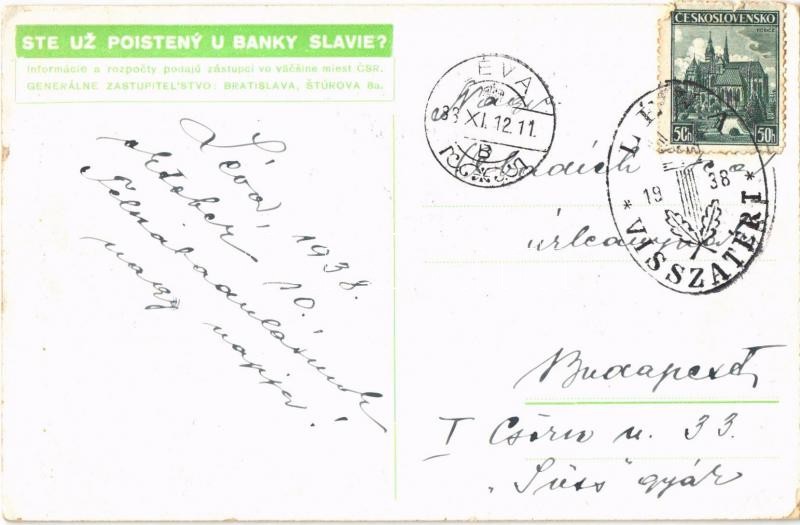 STE UŽ POISTENÝ U BANKY SLAVIE?
Informácie a rozpočty podajú zástupci vo väčšine miest ČSR.
GENERÁLNE ZASTUPITEĽSTVO: BRATISLAVA, ŠTÚROVA 8a.
Léva, 1938.
október 10.
Felszabadulásunk
nagy napja!
ČESKOSLOVENSKO
KOŠICE
50h 50h
LÉVA
938 XI. 12. 11
B
LÉVA
19 38
* VISSZATÉRT *
úrleánynak
Budapest,
I Csörsz u. 33.
„Süss" gyár